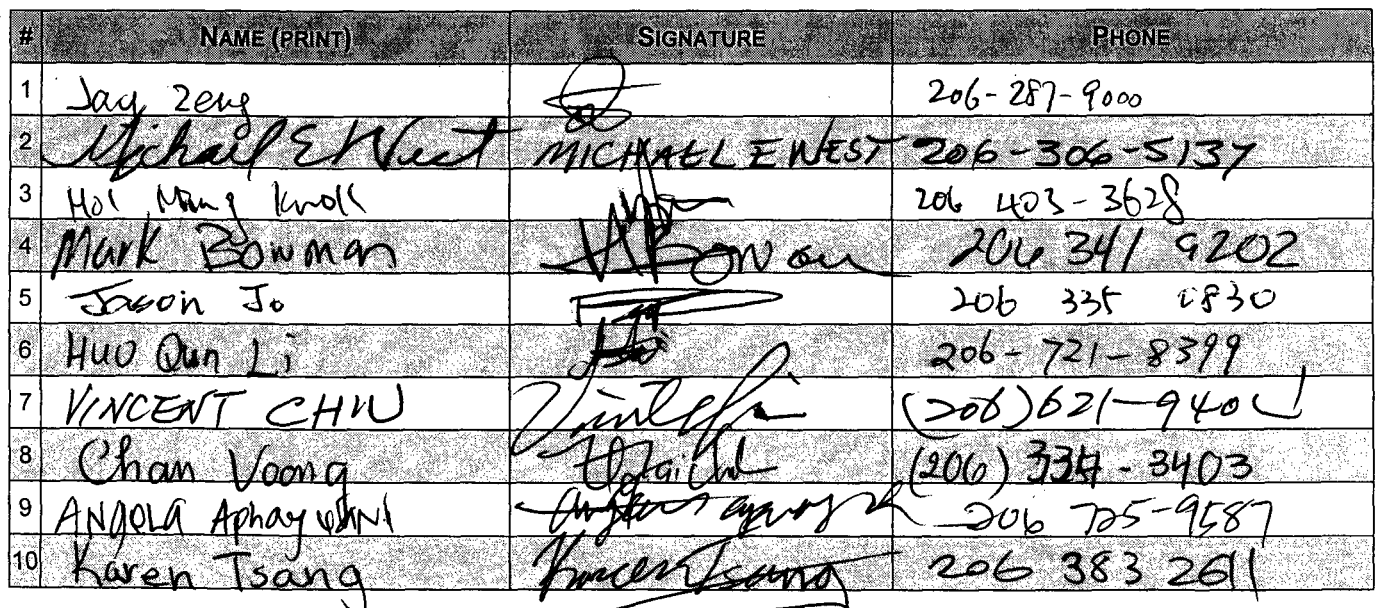 # NAME (PRINT) SIGNATURE PHONE
1 206-287-9000
2 Michael E West MICHAEL E WEST 206-306-5137
3 206 403-3628
4 Mark Bowman 206 341 9202
5 Jason Jo 206 335 0830
6 Huo Qun Li 206-721-8399
7 VINCENT CHIU (206)621-940
8 Chan Voong (206) - 3403
9 ANGOLA 206 725-9587
10 Karen Tsang Karen Tsang 206 383 2611